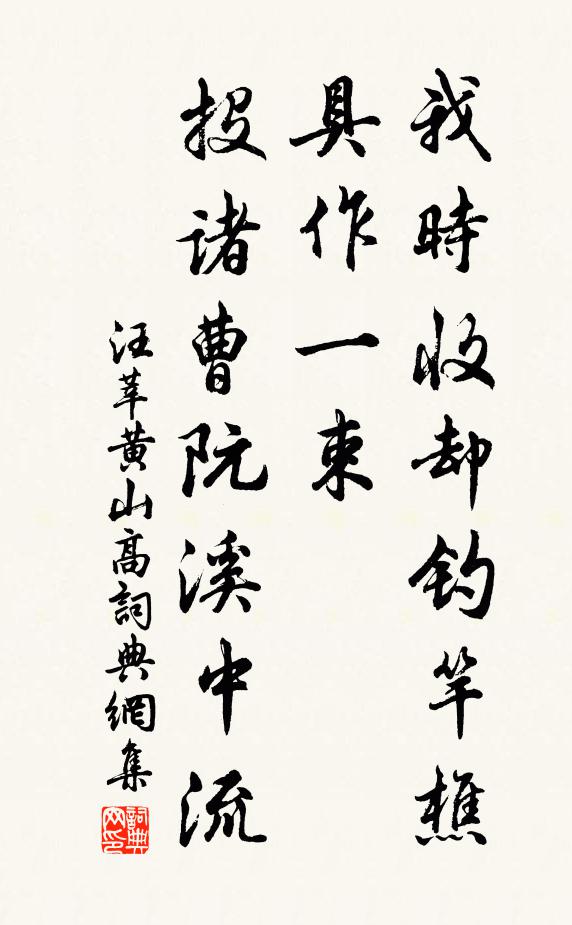 我時收却钓竿樵
具作一束
投诸曹阮溪中流
汪莘黄山高詞典網集
詞典网印